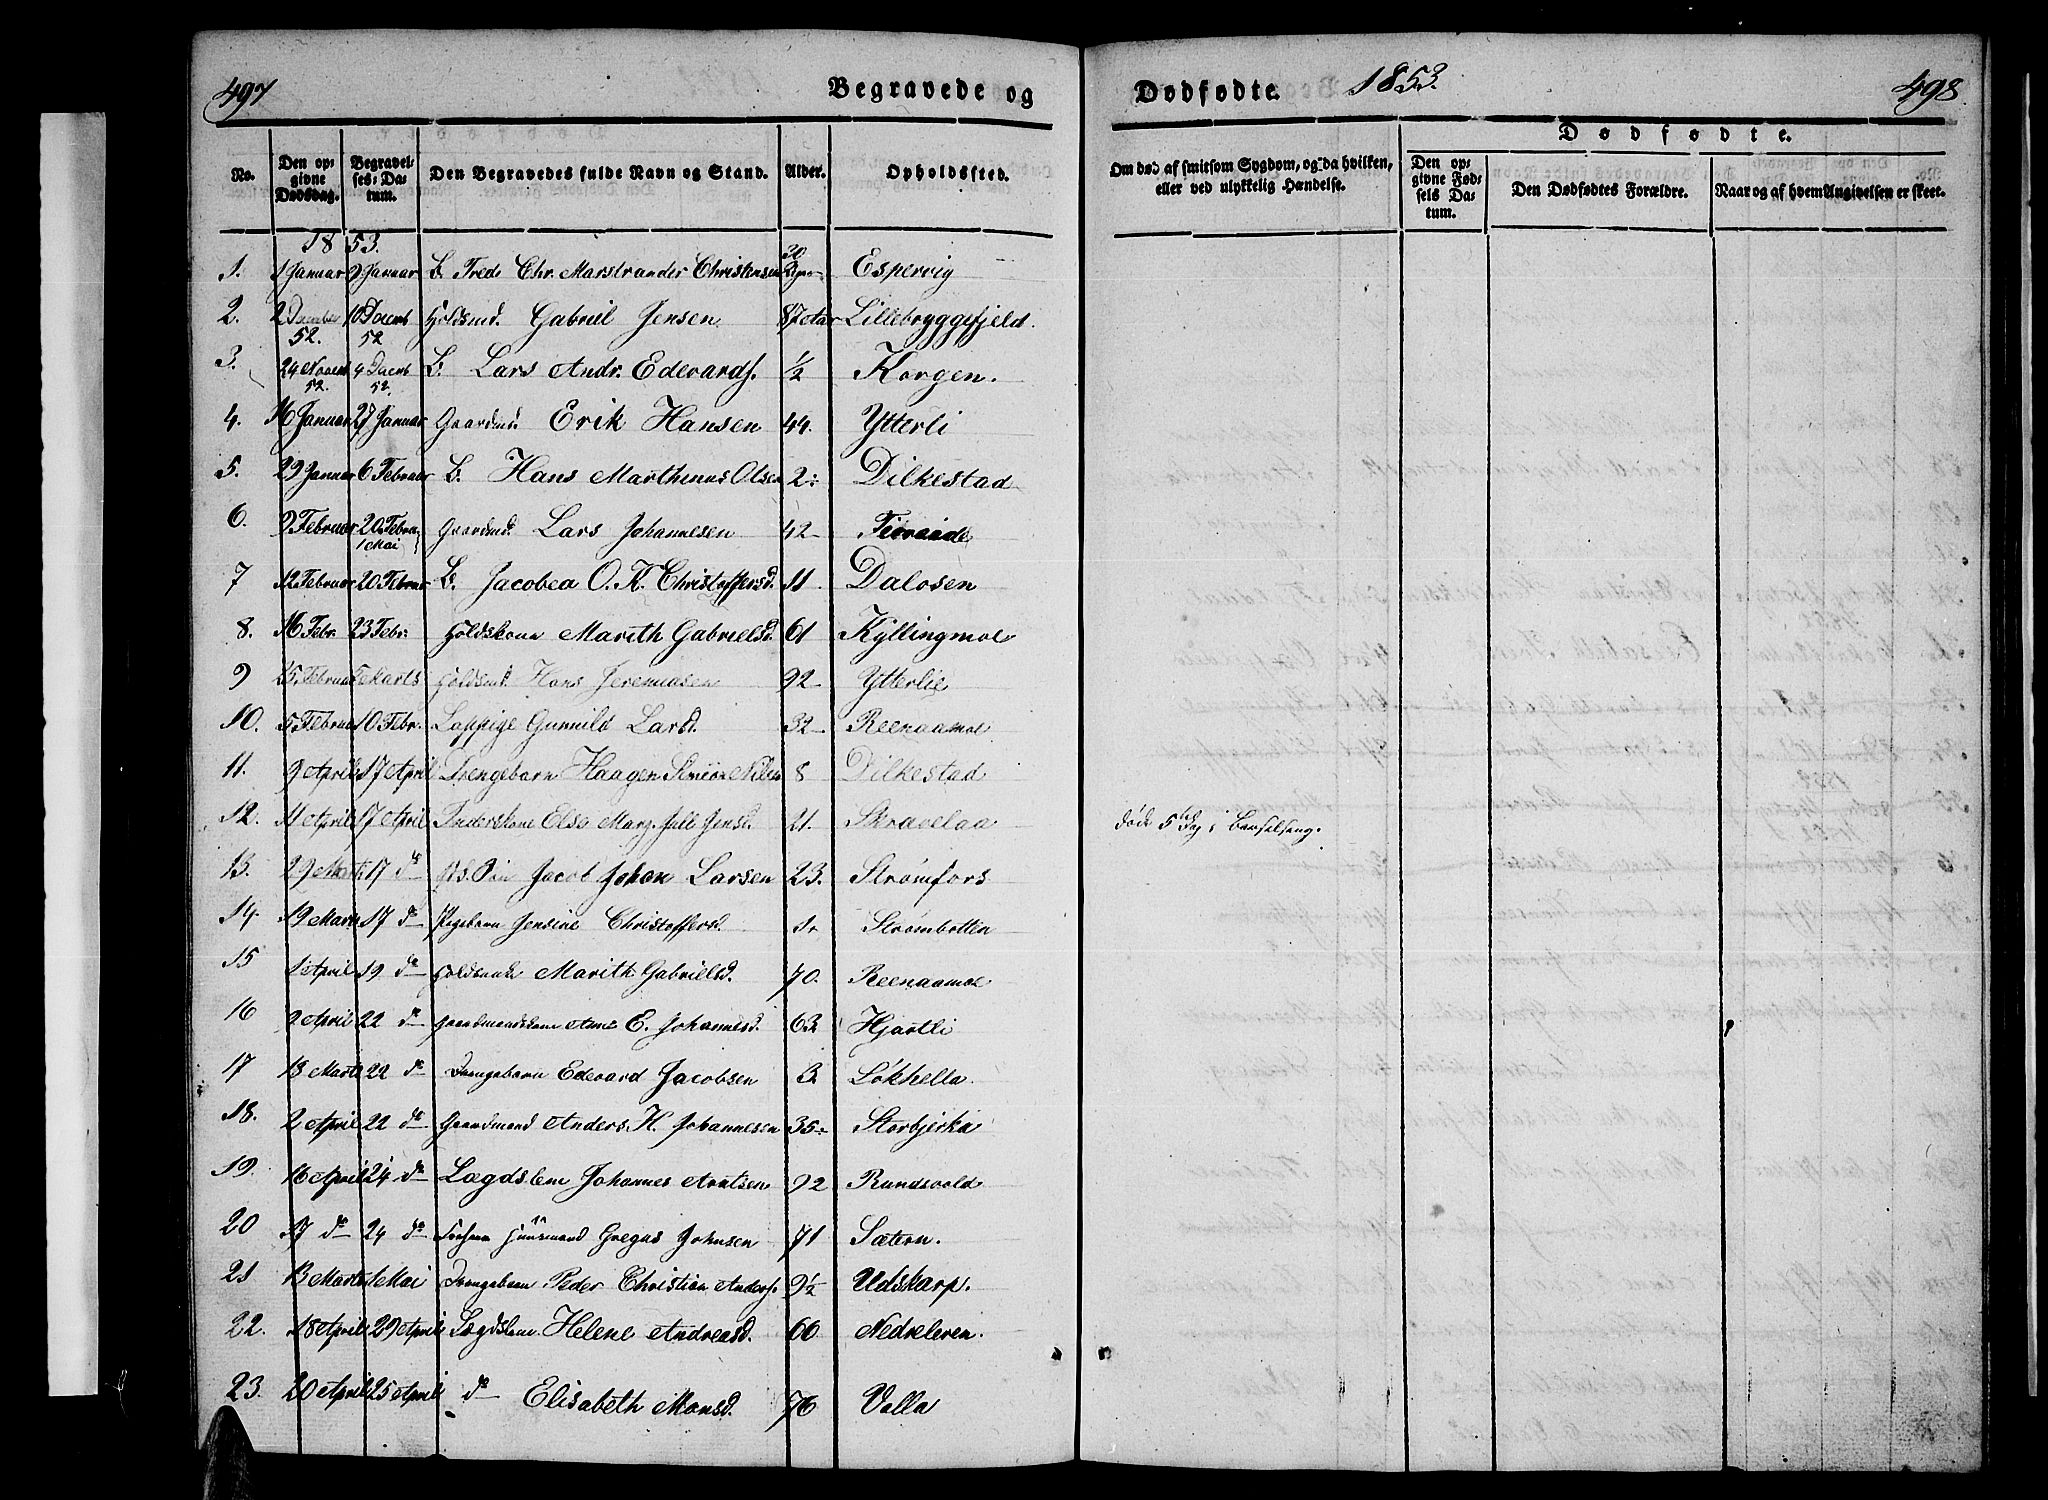 497
Begravede og
Dødfødte. 1853. 498
No. Den opgivne Dødsdag. Begravelses-Datum. Den Begravedes fulde Navn og Stand. Alder. Opholdssted. Om død af smitsom Sygdom, og da hvilken, eller ved ulykkelig Hændelse. Dødfødte. Den opgivne Fødsels Datum. Den Dødfødtes Forældre. Naar og af hvem Angivelsen er skeet.
1853.
1. Januar 9 Januar B. Fred. Chr. Marstrander Christensen 30 Espervig
2. 2 December 52. 10 Decemb 52 Gabriel Jensen 87 Aar Lillebryggefjeld.
3. 24 Novemb 52. 4 Decemb 52. B. Lars Andr. Edevards. ½ Korgen.
4. 16 Januar 27 Januar Gaardmd. Erik Hansen 44. Ytterli
5. 29 Januar 6 Februar B. Hans Marthinus Olsen 2. Dilkestad
6. 9 Februar 20 Februar 1 Mai Gaardmd. Lars Johannesen 42
7 12. Februar 20 Februar B. Jacobea O. K. Christoffersd. 11 Dalosen
8. 16 Febr. 23 Febr. Marith Gabrielsd. 61 Kyllingmoe
9 25. Februar 5 Marts Hans Jeremiasen 92 Ytterlie
10. 5. Februar 10 Febr. Lappige Gunnild Larsd. 32 Reenaamoe
11. 9 April 17 April Drengebarn Haagen Simion Nilsen 8 Dilkestad
12. 11 April 17 April Inderskone Else Marg. Jensd. 21. Skravelaa døde 5te Dag i Barselseng.
13. 29 Marts 17 do Jacob Johan Larsen 23. Strømfors
14. 19 Marts 17 do Pigebarn Jensine Christoffersd. 1. Strømbotten
15 1 April 19 do Marith Gabrielsd. 70. Reenaamoe
16 9 April 22 do Gaardmandskone Anne E. Johannesd. 63 Hjartli
17 13 Marts 22 do Drengebarn Edevard Jacobsen 3 Løkhella.
18. 2 April 22 do Gaardmand Anders H. Johannesen 35. Storbjerka
19. 16 April 24 do Lægdslem Johannes Arntsen 92 Rundsvold
20 17 do 24 do Huusmand Gregus Johnsen 71 Sætern.
21 13 Marts 1 Mai Drengebarn Peder Christian Anders. 9½ Udskarp.
22. 18 April 29 April Lægdslem Helene Andreasd. 66 Nedreleren.
23. 20 April 25 April do Elisabeth Monsd. 76 Valla